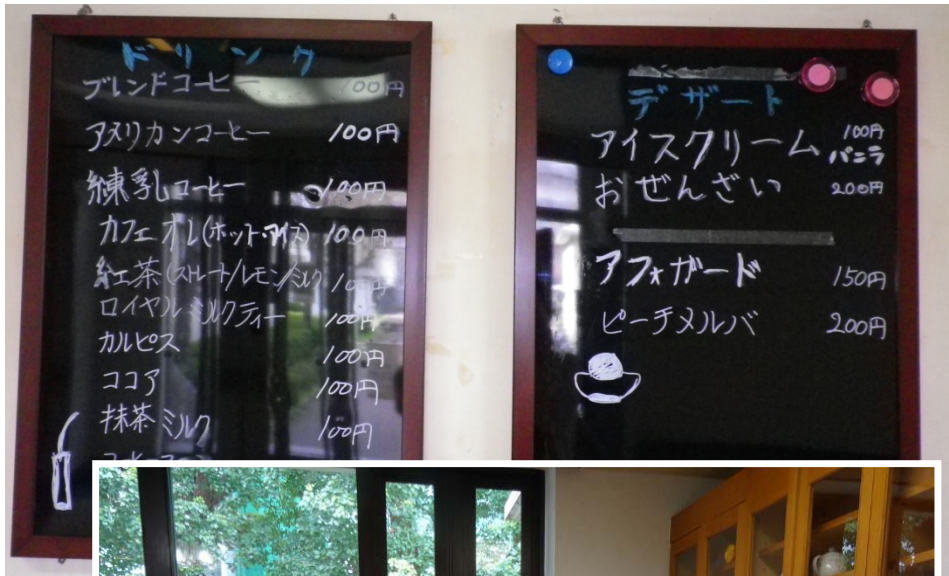 ドリンク
ブレンドコーヒー 100円
アメリカンコーヒー 100円
練乳コーヒー 100円
カフェオレ(ホット・アイス) 100円
紅茶(ストレート/レモン/ミルク 100円
ロイヤルミルクティー 100円
カルピス 100円
ココア 100円
抹茶ミルク 100円
デザート
アイスクリーム 100円
バニラ
おぜんざい 200円
アフォガード 150円
ピーチメルバ 200円